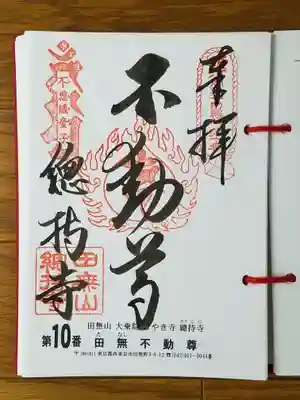 奉拝
不動尊
總持寺
不思議童子
田無山
總持寺
田無山 大乗院 けやき寺 總持寺
第10番 田無不動尊